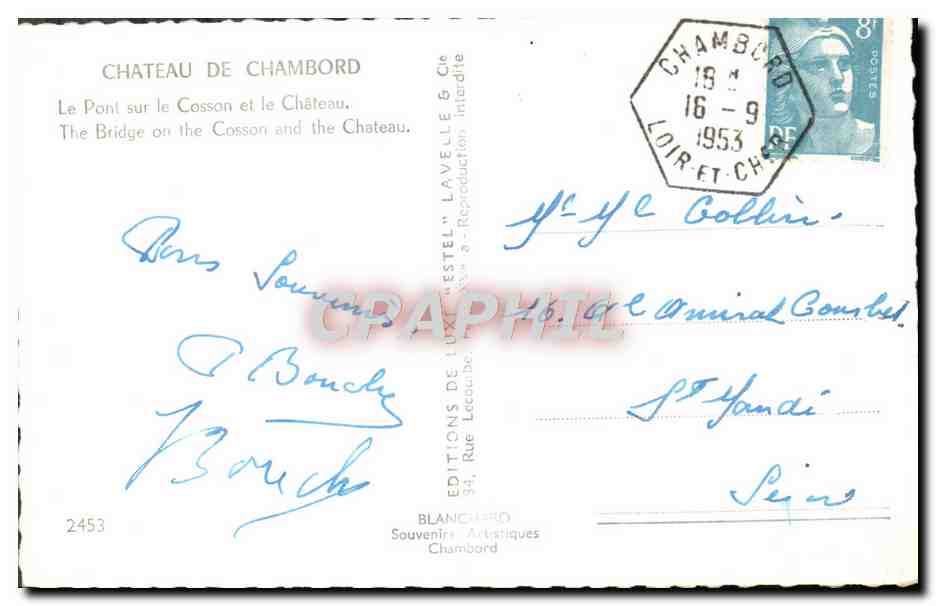 CHATEAU DE CHAMBORD
Le Pont sur le Cosson et le Château.
The Bridge on the Cosson and the Chateau.
Bons
Souvenirs.
P Bouchy
Bouch
2453
EDITIONS DE LUXE "ESTEL" LAVELLE & Cie
94, Rue Lecourbe, XVe - Reproduction interdite
BLANCHARD
Souvenirs Artistiques
Chambord
CHAMBORD
18
16 - 9
1953
LOIR-ET-CHER
8F
POSTES
RF
Mr Me Collin.
16. Al Amiral Courbet.
St Mandé
Seine
CRAPHIL